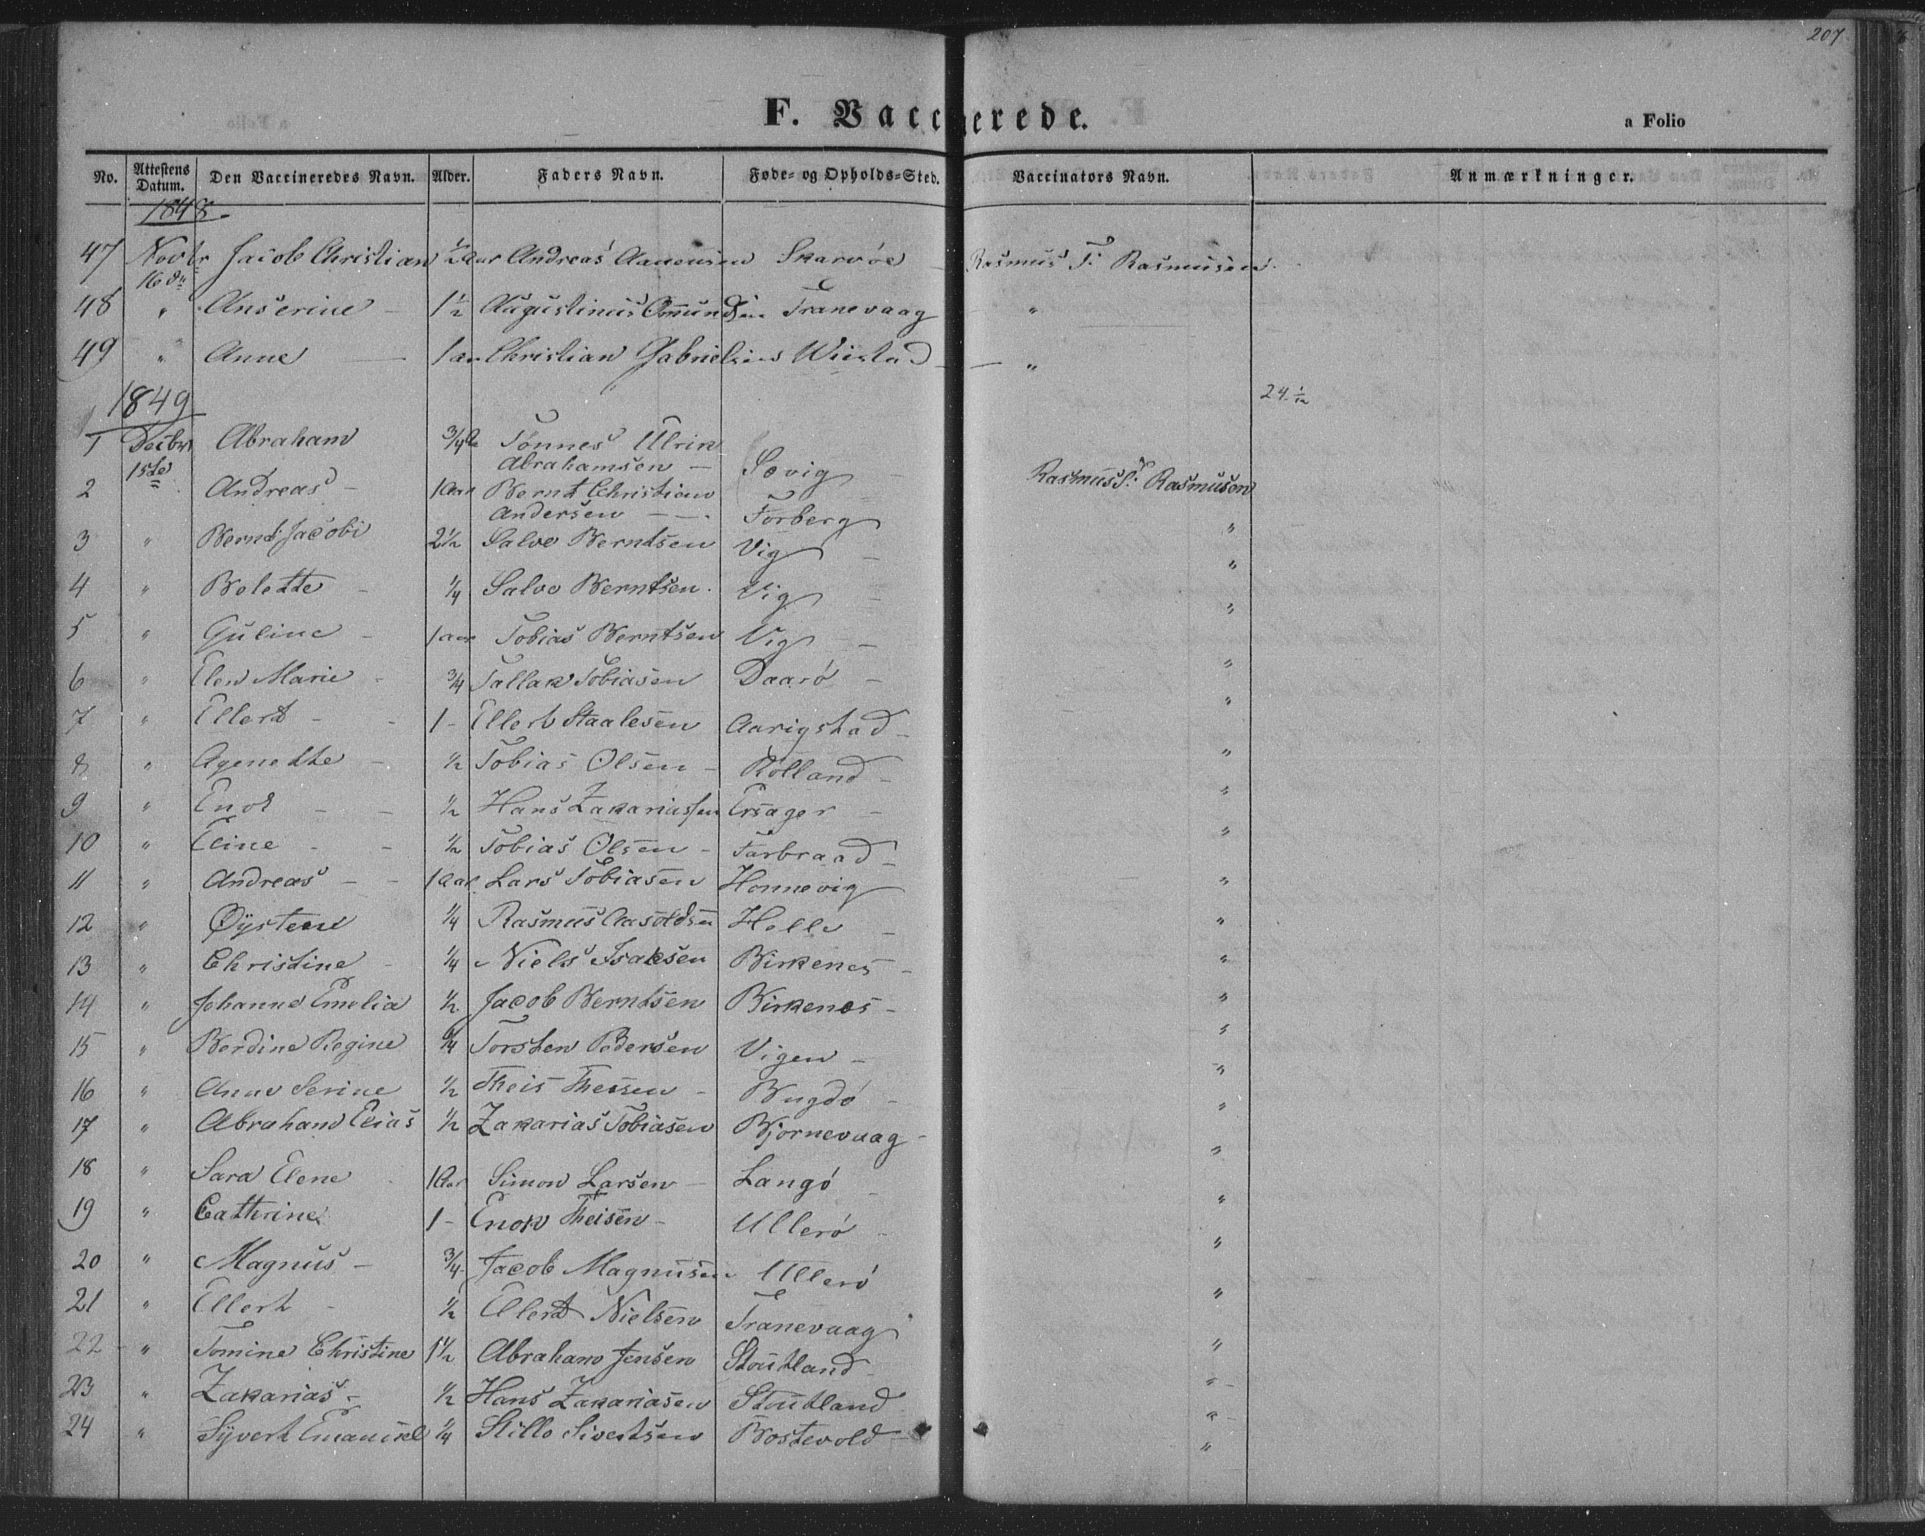 207
F. Vaccinerede.
a Folio
No. Attestens Datum. Den Vaccineredes Navn. Alder. Faders Navn. Føde- og Opholds-Sted. Vaccinators Navn. Anmærkninger.
1848
47 Novbr 16de Jacob Christian ½ Aar Andreas Aanensen Skarvøe Rasmus F. Rasmusen
48 " Anserine - 1½ Augustinus Omundsen Tranevaag "
49 " Anne - 1 aar Christian Gabrielsen Wiistad - "
1849
24 1/12
1 Decbr 15de Abraham ¾ Tønnes Ulrik
Abrahamsen - Søvig -
2 Andreas - 1 Aar Bernt Christian Rasmus F. Rasmusen
Andersen - Torberg "
3 " Bernt Jacobi 2½ Salve Berntsen Vig - "
4 " Belette - ¼ Salve Berntsen Vig - "
5 " Guline - 1 aar Tobias Berntsen Vig - "
6 " Elen Marie - ¾ Tallak Tobiasen Daarø - "
7 " Ellert - - 1 - Ellert Staalesen Aarigstad - "
8 " Agenethe - ½ Tobias Olsen - Rolland - "
9 " Enok - - ½ Hans Zakariassen Ersager - "
10 " Eline - - ½ Tobias Olsen - Tarbraad - "
11 " Andreas - - 1 aar Lars Tobiasen Honnevig "
12 " Øysten ¼ Rasmus Aasoldsen Helle - "
13 " Christine - ¼ Niels Isaksen Birkenes - "
14 " Johanne Emelia ½ Jacob Berntsen Birkenes - "
15 " Berdine Regine ¼ Torsten Pedersen Vigen - "
16 " Anne Serine ½ Theis Thessen - Bugdø - "
17 " Abraham Elias ½ Zakarias Tobiasen Bjørnevaag - "
18 " Sara Elene 1 Aar Simon Larsen - Langø - "
19 " Cathrine 1 - Enok Theisen - Ullerø - "
20 " Magnus - ¾ Jacob Magnusen Ullerø "
21 " Ellert - ½ Ellert Nielsen Tranevaag "
22 - " Tomine Christine 1½ Abraham Jensen Stoutland - "
23 " Zakarias - ½ Hans Zakariasen Stoutland " -
24 " Syvert Emanuel ¼ Stille Sivertsen Bostevold " -
"